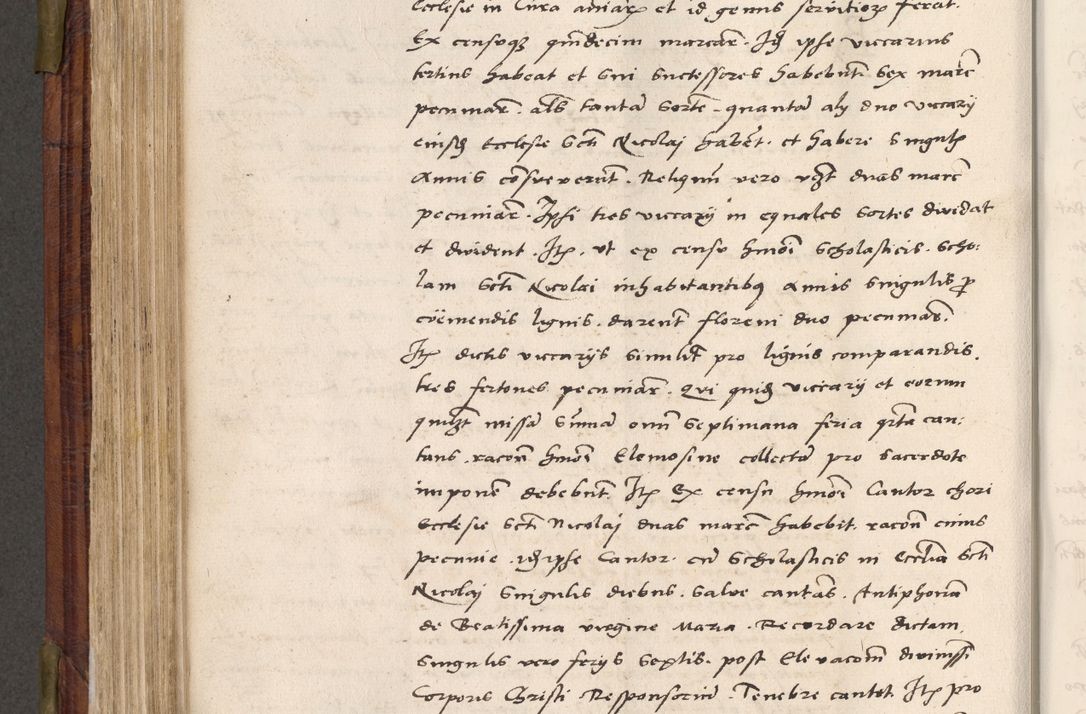 Ecclesie in Cura aniarꝫ et id genus servitiorꝫ ferat.
Ex censuqꝫ quīdecim marcar̄. Idē ipse viccarius
tertius habeat et sui successores habebunt sex marc̄
pecuniar̄. al̄s tantā sorte. quantā alij duo viccarij
eiusdē Ecclesie Scti Nicolaj habēt. et habere singul̄
Annis cōsueverūt. Reliquū vero vꝫt duas marc̄
pecuniar̄. Ipsi tres viccarij in equales sortes dividāt
et divident. Itꝫ. ut ex censu hmōi scholasticis. scho:
lam Scti Nicolai inhabitantibꝫ Annis singulis ꝓ
coëmendis lignis. darent floreni duo pecuniar̄.
Itꝫ dictis viccarijs similit̄ pro lignis comparandis.
tres fertones pecuniar̄. Qui quidē viccarij et eorum
quilꝫt missā summā omī septimana feria qrta can:
tans. racōn hmōi Elemosine collectā pro sacerdote
imponēn debebūt. Itꝫ Ex censu hmōi Cantor chori
Ecclesie Scti Nicolaj duas marc̄ habebit. racōn cuius
pecunie. idē ipse Cantor. cū Scholasticis in Ecclīa Scti
Nicolaj singulis diebus. Salve cantās. Antiphonā
de Beatissima virgine Maria. Recordare dictam.
singulis vero ferijs sextis. post Elevacōnm divinissi
Corporis Christi Responsoriū. Tenebre cantēt. Itꝫ pro